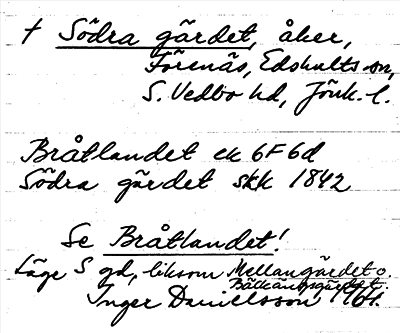 † Södra gärdet, åker,
Förenäs, Edshults sn,
S. Vedbo hd, Jönk. l.
Bråtlandet ek 6F6d
Södra gärdet skk 1842
Se Bråtlandet!
Läge S gd, liksom Mellangärdet o.
Bäckängsgärdet.
Inger Danielsson 1961.